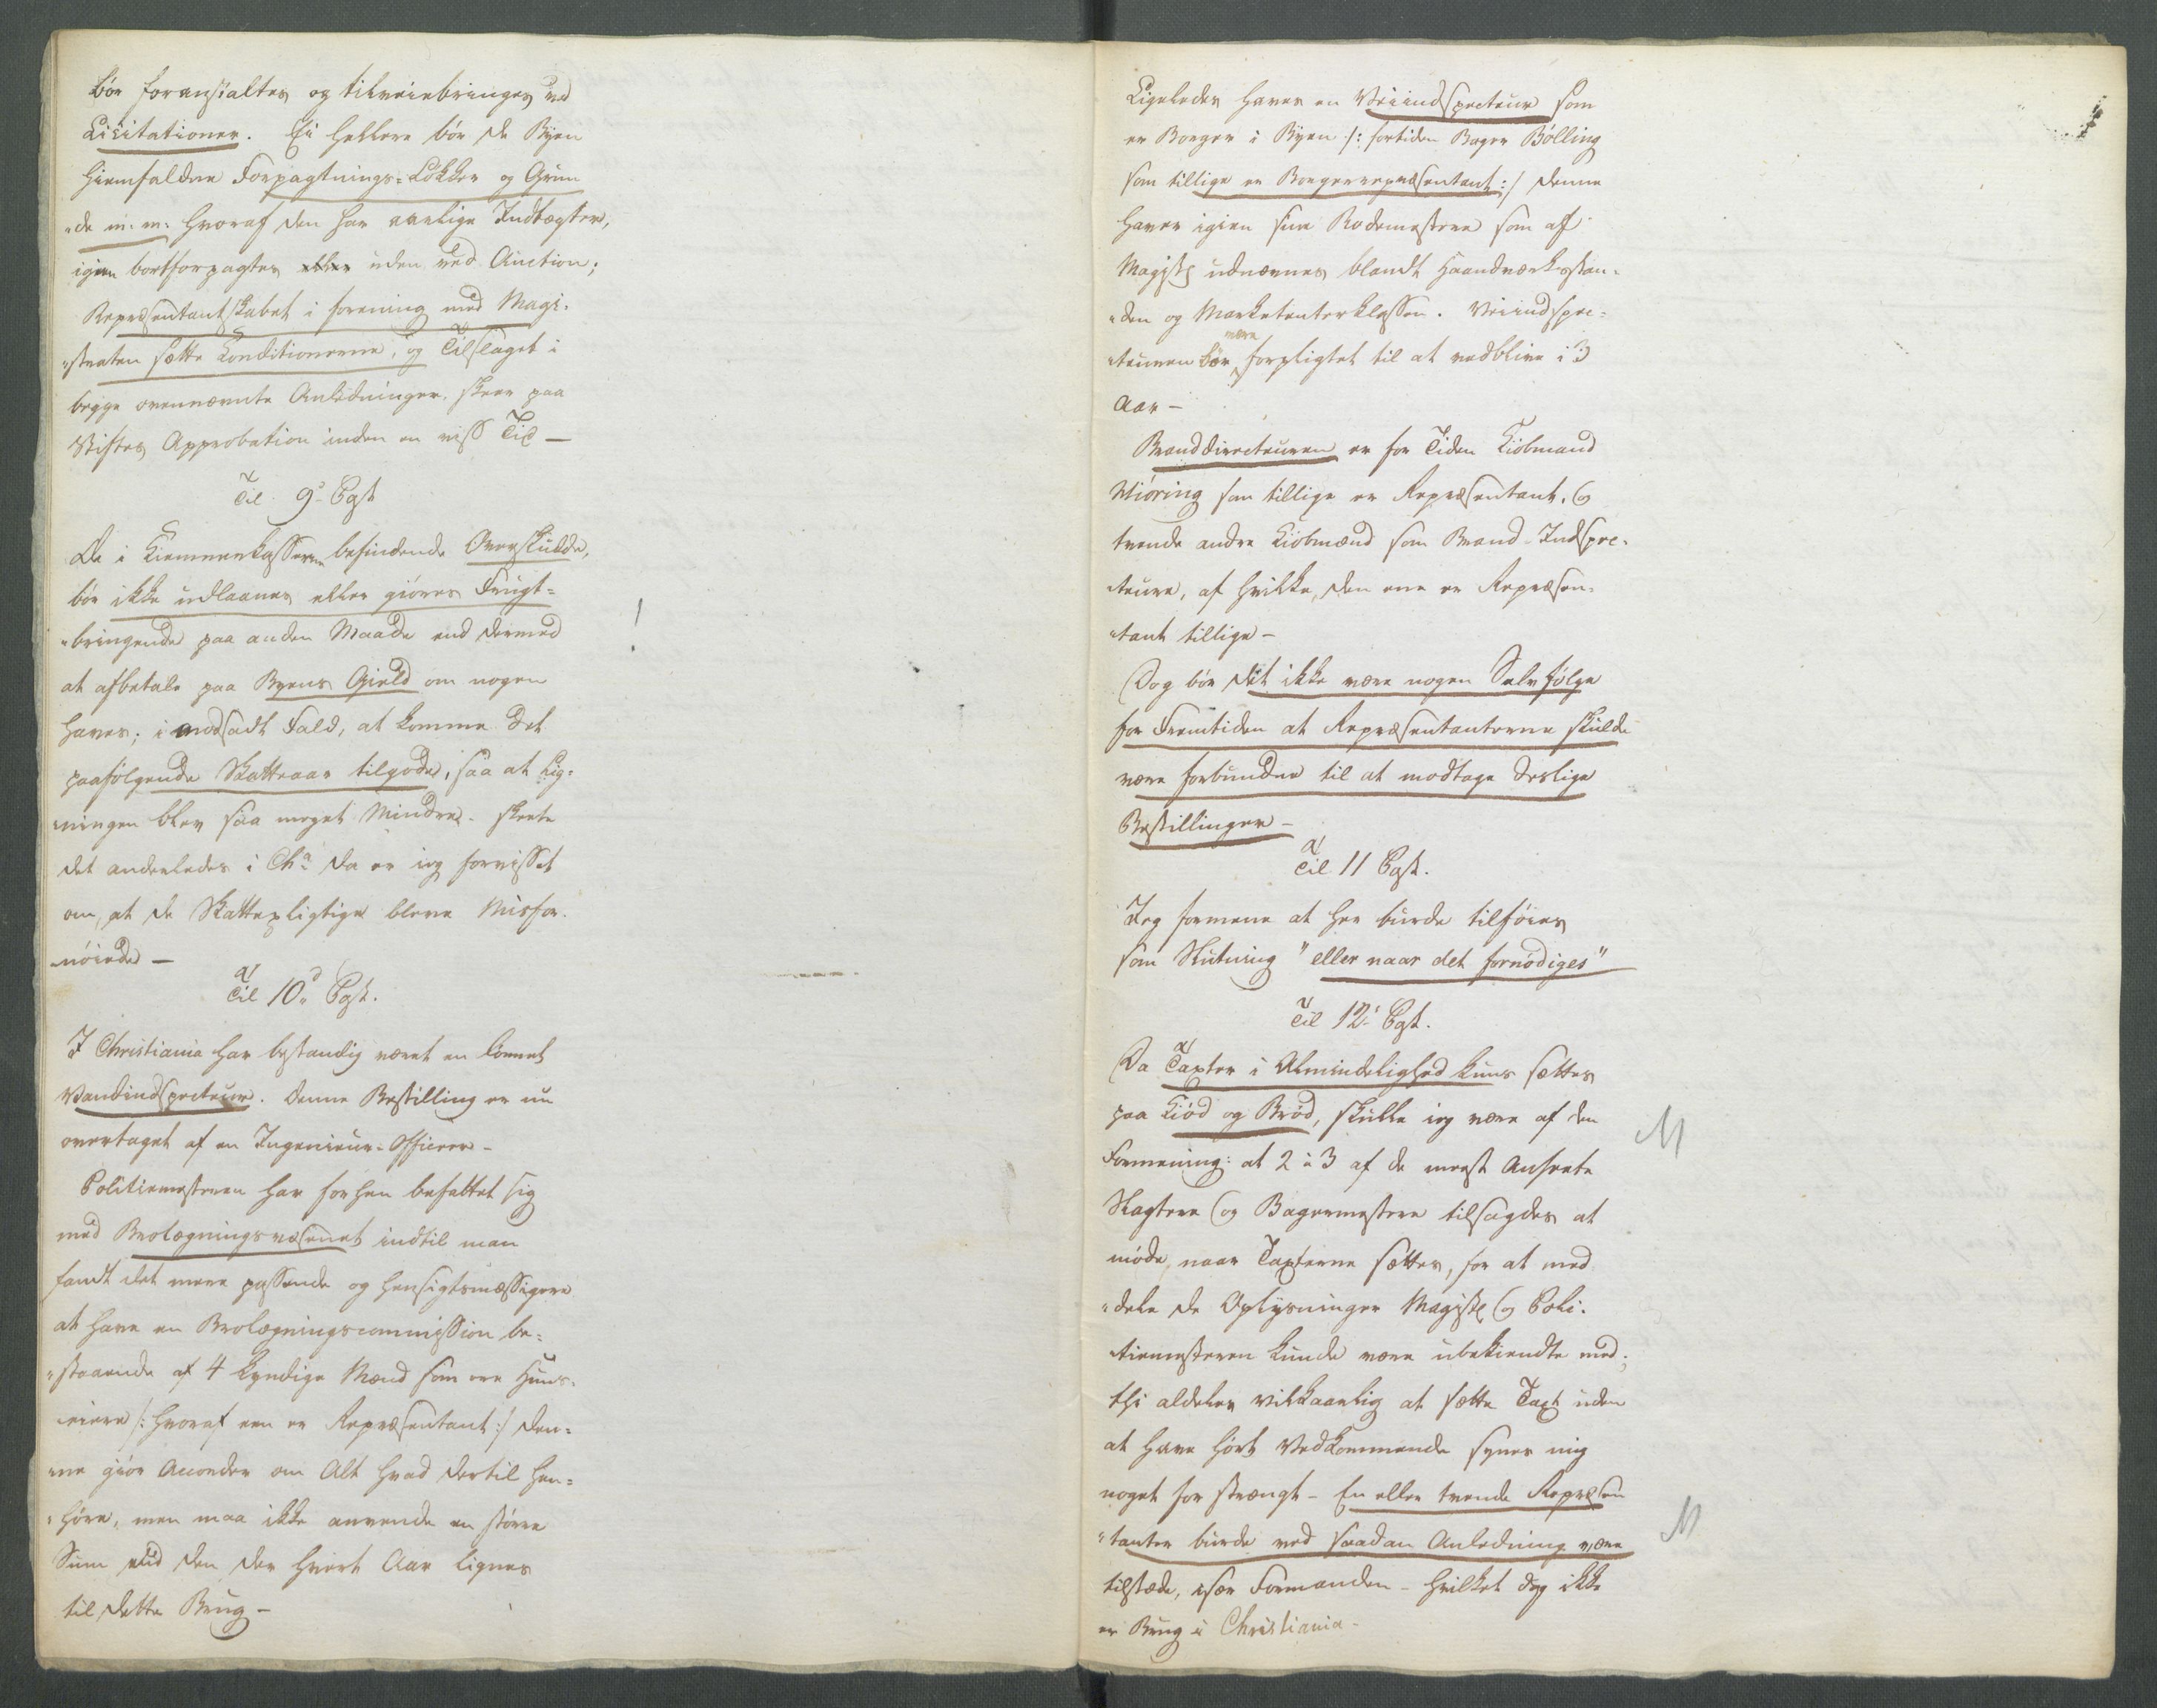 bör foranstaltes og tilveiebringes ved
Licitationer. Ei hellere bör de Byen
hiemfaldne Forpagtnings=Lökker og Grun
"de m: m: hvoraf den har aarlige Indtægter,
igien bortforpagtes uden ved Auction;
Repræsentantskabet i forening med Magi-
"straten sætte Conditionerne, og Tilslaget i
begge ovennævnte Anledninger skeer paa
Stiftes Approbation inden en viss Tid —
Til 9d Pgt
De i Kiemnerkasserne befindende Overskudde,
bör ikke udlaanes eller giöres Frugt=
"bringende paa anden Maade end dermed
at afbetale paa Byens Gield om nogen
haves; i modsadt Fald, at komme det
paafölgende Skatteaar tilgode, saa at Lig-
"ningen blev saa meget Mindre. skeete
det anderledes i Cha da er ieg forvisset
om, at de Skattepligtige bleve Misfor-
nöiede —
Til 10d Pgt.
I Christiania har bestandig været en lönnet
Vandindspecteur. Denne Bestilling er nu
overtaget af en Ingenieur-Officeer -
Politiemesteren har forhen befattet sig
med Brolægningsvæsenet indtil man
fandt det mere passende og hensigtsmæssigere
at have en Brolægningscommission be-
"staaende af 4 kyndige Mænd som ere Huus-
"eiere /: hvoraf een er Repræsentant :/ Den-
"ne giör Accorder om Alt hvad dertil hen=
"höre, men maa ikke anvende en större
Sum end den der hvert Aar lignes
til dette Brug -
Ligeledes haves en Veiindspecteur som
er Borger i Byen /: fortiden Bager Bölling
som tillige er Borgerrepræsentant :/ denne
haver igien sine Rodemestere som af
Magistr udnævnes blandt Haandværksstan-
"den og Marketenterklassen. Veiindspec-
"teuren bör være forpligtet til at vedblive i 3
Aar -
Branddirecteuren er for Tiden Kiöbmand
Niöring som tillige er Repræsentant, og
tvende andre Kiöbmænd som Brand-Indspec-
"teure, af hvilke, den ene er Repræsen-
"tant tillige -
Dog bör det ikke være nogen Selvfölge
for Fremtiden at Repræsentanterne skulde
være forbundne til at modtage deslige
Bestillinger -
Til 11 Pgt.
Jeg formene at her burde tilföies
som Slutning "eller naar det fornödiges"
Til 12d Pgt.
Da Taxter i Almindelighed kuns sættes
paa Kiöd og Bröd, skulle ieg være af den
Formening: at 2 à 3 af de meest Anseete
Slagtere og Bagermestere tilsagdes at
möde, naar Taxterne sættes, for at med-
"dele de Oplysninger Magistr og Poli-
"tiemesteren kunde være ubekiendte med;
thi aldeles vilkaarlig at sætte Taxt uden
at have hört Vedkommende synes mig
noget for strængt - En eller tvende Repræsen
"tanter burde ved saadan Anledning være
tilstæde, især Formanden - hvilket dog ikke
er Brug i Christiania -